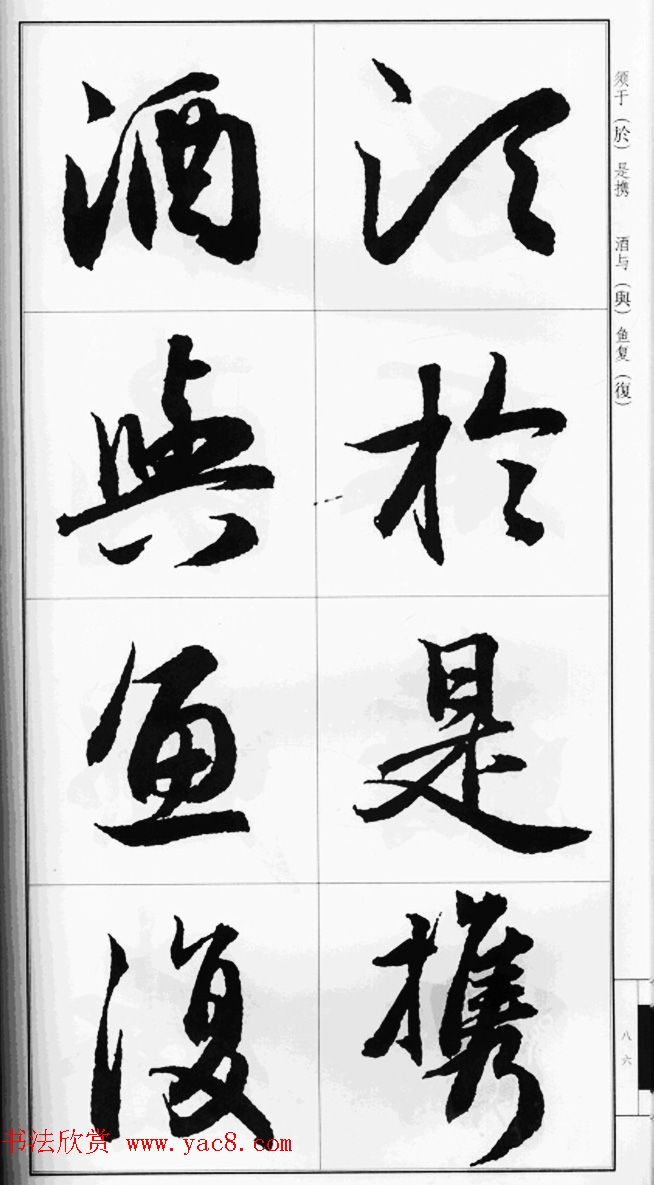 须于（於）是携　酒与（與）鱼复（復）
須於是携
酒與鱼復
八六
书法欣赏 www.yac8.com